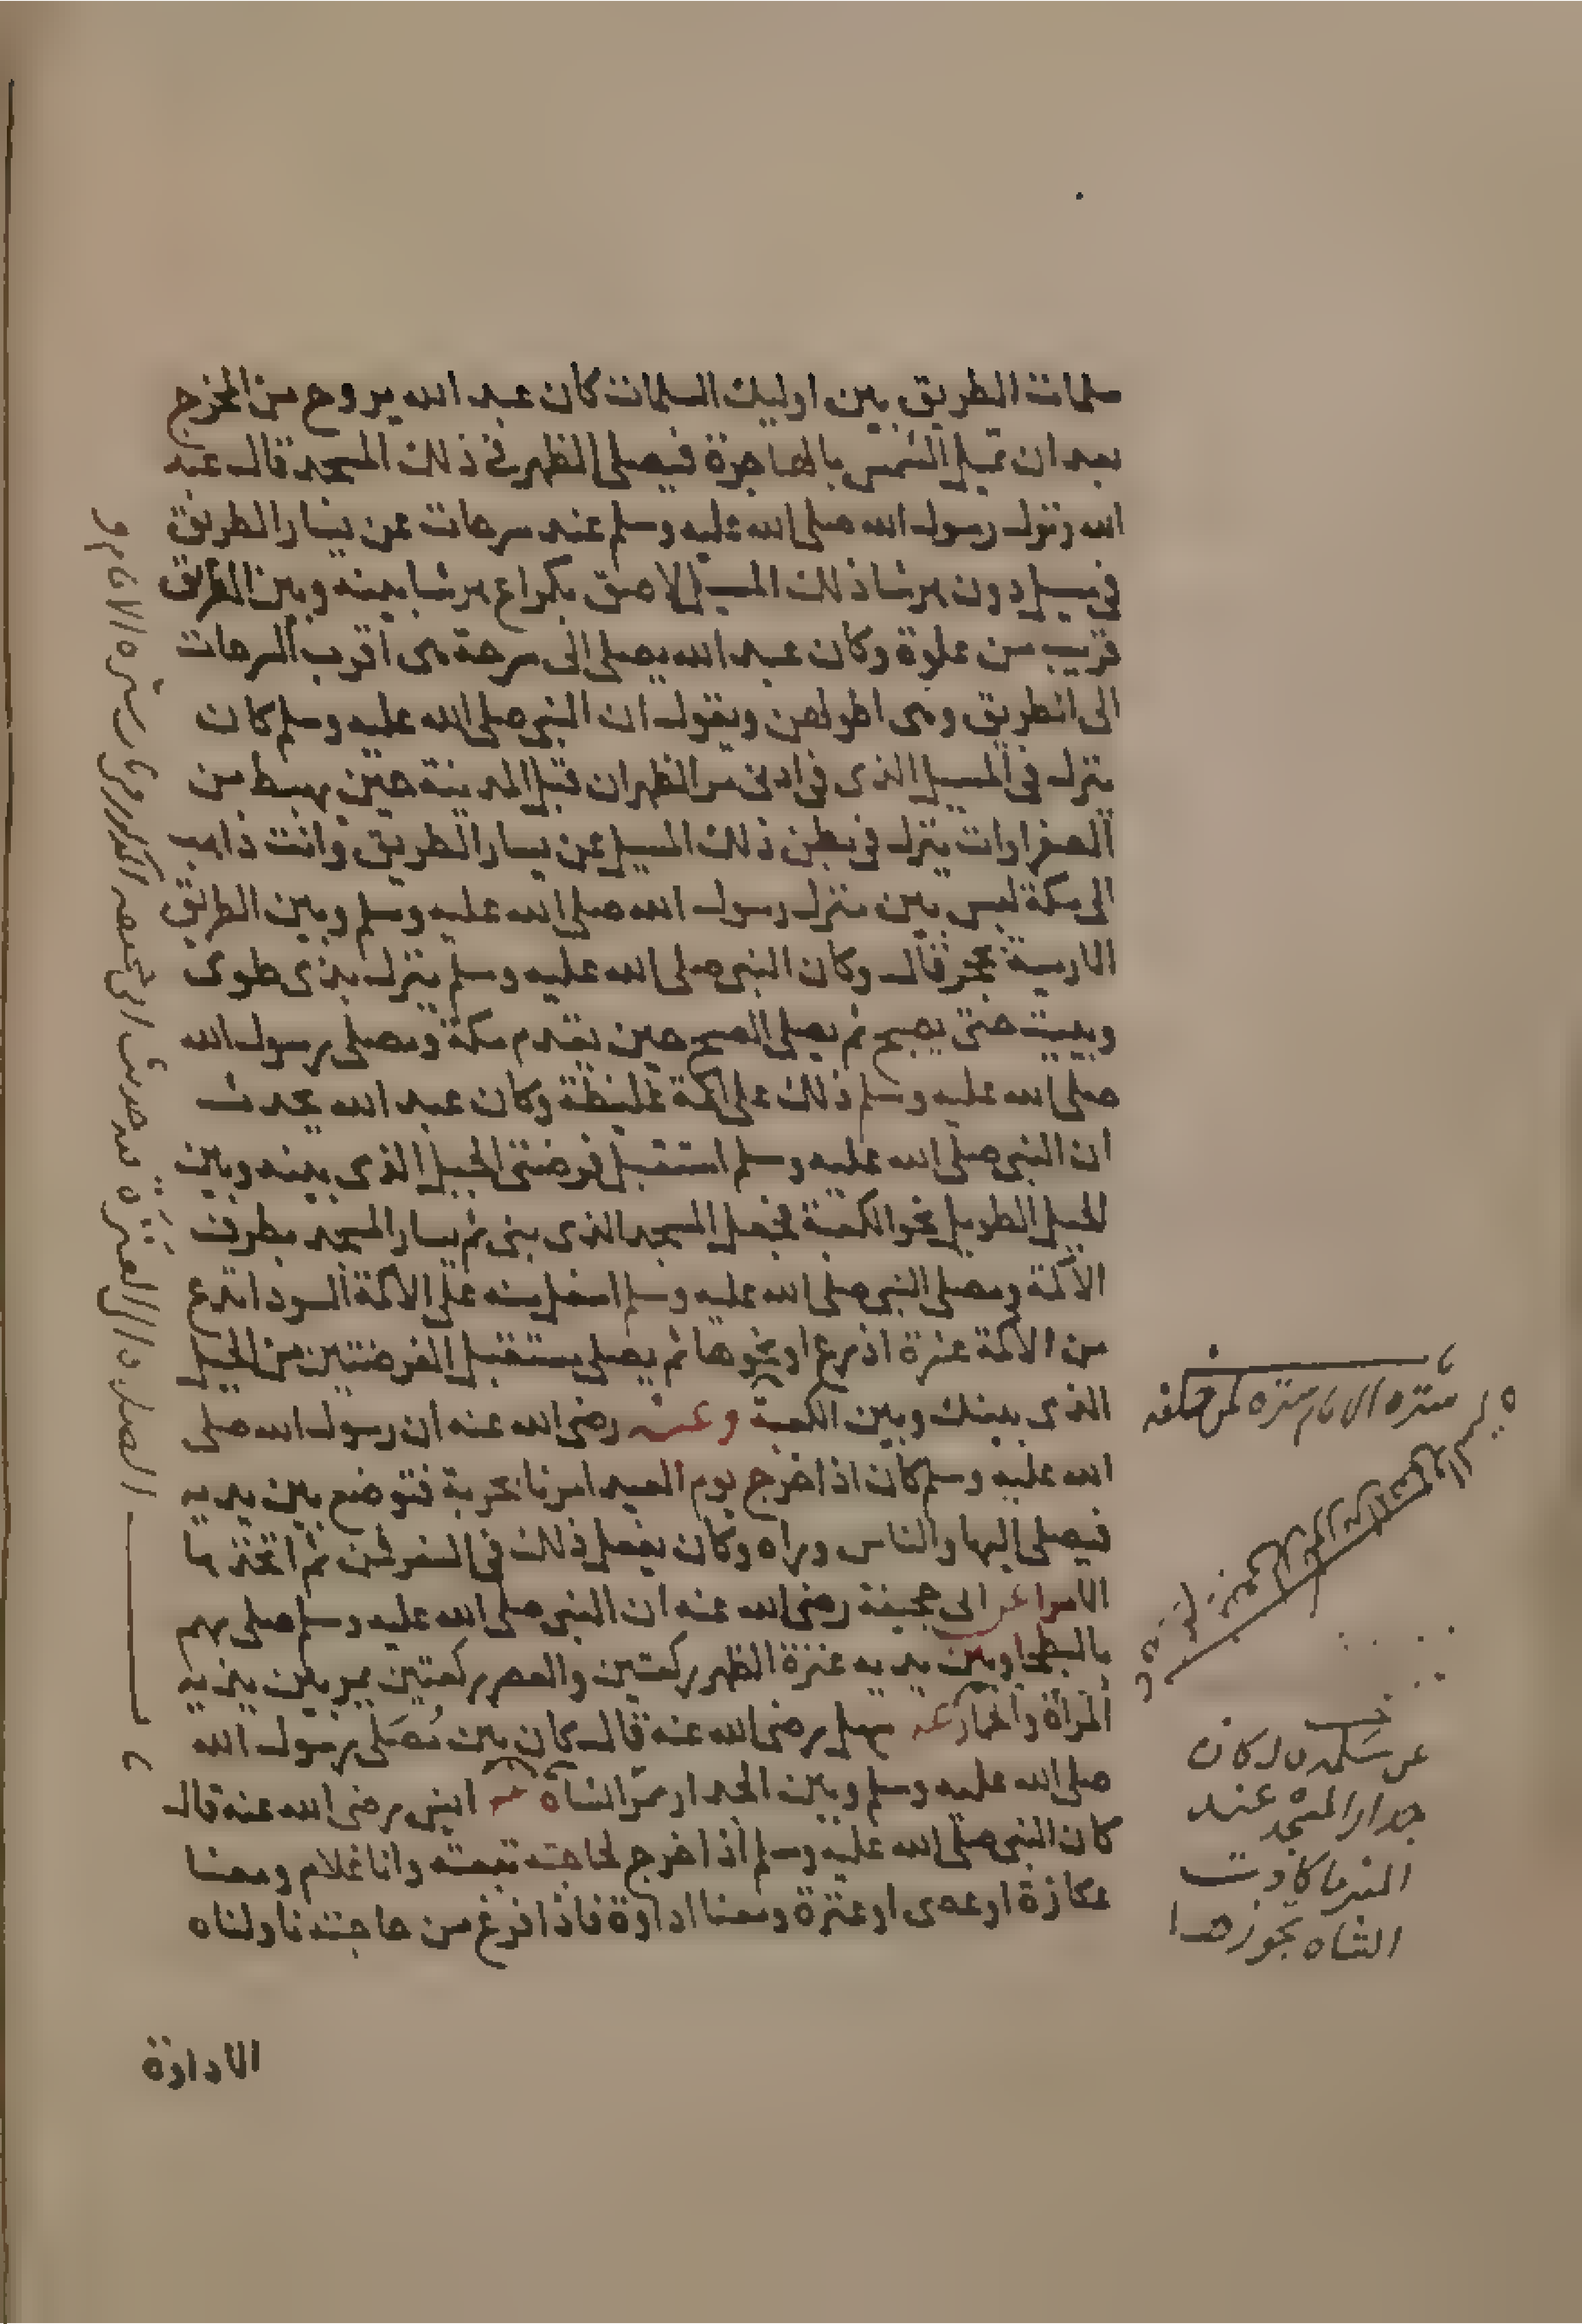 سلمات الطريق بين اوليك السلمات كان عبد الله يروح من العرج
بعد ان تميل الشمس بالهاجرة فيصلي الظهر في ذلك المسجد قال عبد
الله ونزل رسول الله صلى الله عليه وسلم عند سرحات عن يسار الطريق
في مسيل دون هرشا ذلك المسيل لاصق بكراع هرشا بينه وبين الطريق
قريب من غلوة وكان عبد الله يصلي الى سرحة هى اقرب السرحات
الى الطريق وهى اطولهن ويقول ان النبي صلى الله عليه وسلم كان
ينزل في المسيل الذى في ادنى مر الظهران قبل المدينة حين يهبط من
الصفراوات ينزل في بطن ذلك المسيل عن يسار الطريق وانت ذاهب
الى مكة ليس بين منزل رسول الله صلى الله عليه وسلم وبين الطريق
الا رمية بحجر قال وكان النبي صلى الله عليه وسلم ينزل بذى طوى
ويبيت حتى يصبح ثم يصلي الصبح حين يقدم مكة ومصلى رسول الله
صلى الله عليه وسلم ذلك على اكمة غليظة وكان عبد الله يحدث
ان النبي صلى الله عليه وسلم استقبل فرضتى الجبل الذى بينه وبين
الجبل الطويل نحو الكعبة فجعل المسجد الذى بنى ثم يسار المسجد بطرف
الاكمة ومصلى النبي صلى الله عليه وسلم اسفل منه على الاكمة السودا تدع
من الاكمة عشرة اذرع او نحوها ثم يصلي مستقبل الفرضتين من الجبل
الذى بينك وبين الكعبة وعنه رضي الله عنه ان رسول الله صلى
الله عليه وسلم كان اذا خرج يوم العيد امرنا بحربة فتوضع بين يديه
فيصلي اليها والناس وراه وكان يفعل ذلك في السفر فمن ثم اتخذها
الامرا عن ابى جحيفة رضي الله عنه ان النبي صلى الله عليه وسلم صلى بهم
بالبطحا وبين يديه عنزة الظهر ركعتين والعصر ركعتين يمر بين يديه
المراة والحمار عن سهل رضي الله عنه قال كان بين مصلى رسول الله
صلى الله عليه وسلم وبين الجدار ممر الشاه عن انس رضي الله عنه قال
كان النبي صلى الله عليه وسلم اذا خرج لحاجته تبعته وانا غلام ومعنا
عكازة او عصى او عنزة ومعنا اداوة فاذا فرغ من حاجته ناولناه
الاداوة
سترة الامام سترة لمن خلفه
عن سلمة قال كان
جدار المسجد عند
المنبر ما كادت
الشاة تجوزها